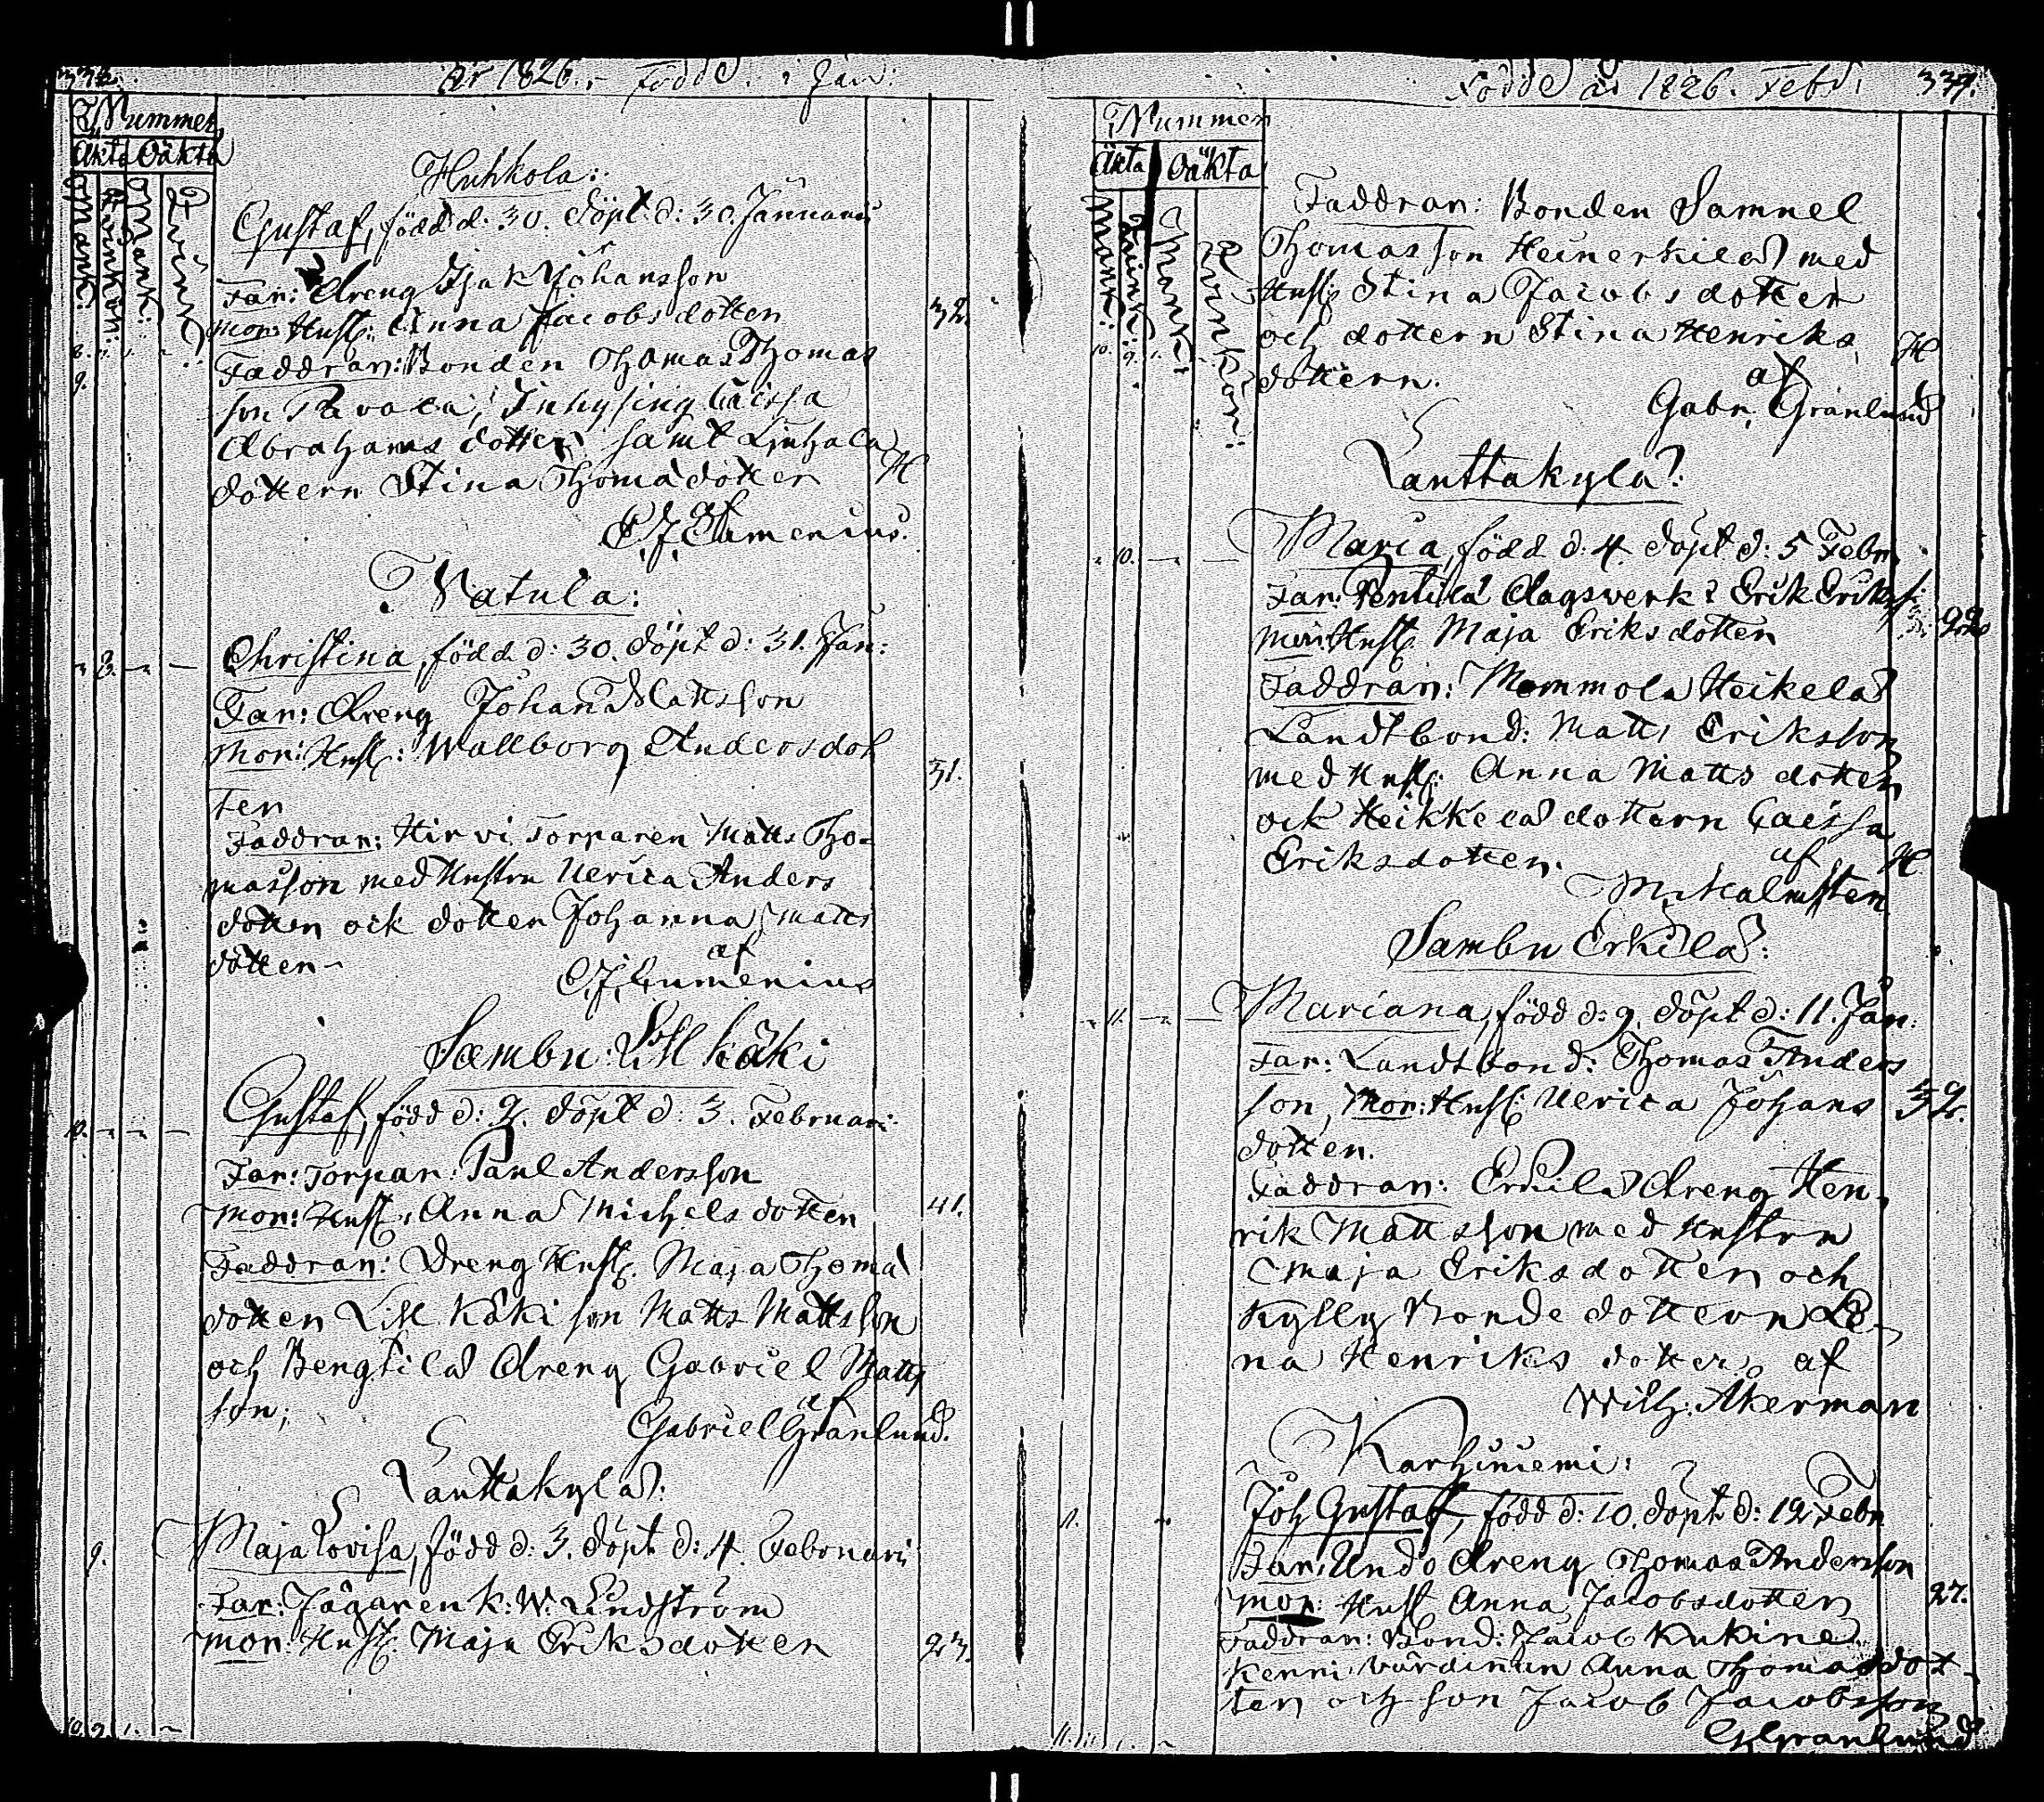 År 1826. Födde i Jan:
Nummer
Äkta Oäkta
Mank:
Qvinkön:
Mank:
Huhkola:
Gustaf, född d: 30. döpt d: 30. Januarii
9.
Far: Dreng Isak Johansson
mor: Hust: Anna Jacobsdotter
32.
Faddrar: Bonden Thomas Thomas
son Pavola, Inhysing Caisa
Abrahams dotter samt
dottern Stina Thomadotter
af
C. J. Lumenius.
Vatula:
8.
Christina, född d: 30. döpt d: 31. Jan:
Far: Dreng Johan Mattsson
Mor: Hust: Wallborg Andersdot
ter
31.
Faddrar: Hirvi Torparen Matts Tho-
masson med Hustru Ulrica Anders
dotter och dotter Johanna Matts
dotter
af
C. J. Lumenius
Sambu: Lill käki
10.
Gustaf, född d: 2. döpt d: 3. Februari
Far: Torpar: Paul Andersson
mor: Hust: Anna Michelsdotter
41.
Faddrar: Dreng Hust: Maja Thoma
dotter Lill käki son Matts Mattsson
och Bengtilä Dreng Gabriel Matts
son;
af
Gabriel Granlund.
Lanttakylä:
9.
Maja Lovisa, född d: 3. döpt d: 4. Februarii
Far: Jägaren K: W. Lindström
mor: Hust: Maja Eriksdotter
23.
10. 9. 1.
Födde år 1826. Febr:
Nummer
Äkta Oäkta
Mank:
Qvink:
Mank:
Qvinkön:
10. 9. 1.
Faddrar: Bonden Samuel
Thomasson Heinerkilä med
Hust: Stina Jacobsdotter
och dottern Stina Henriks
dottern.
af
Gabr. Granlund
Lanttakylä:
10.
Maria, född d: 4. döpt d: 5 Febr.
Far: Pentilä Dagsverk: Erik Eriks:
Mor: Hust: Maja Eriksdotter
22
Faddrar: Mommola Heikelä
Landtbond: Matts Eriksson
med Hust: Anna Matts dotter
och Heikkelä dottern Caisa
Eriksdotter.
af
M. Malmsten
Sambu Erkilä:
11.
Mariana, född d: 9. döpt d: 11. Jan:
Far: Landtbond: Thomas Anders
son, Mor: Hust: Ulrica Johans
32.
dotter.
Faddrar: Erkilä Dreng Hen-
rik Mattsson med Hustru
Maja Eriksdotter och
Kylly Bonde dottern Le-
na Henriks dotter, af
Wilh: Åkerman
Karhiniemi:
11.
Joh Gustaf, född d: 10. döpt d: 12 Febr
Far: Undo Dreng Thomas Andersson
mor: Hust Anna Jacobsdotter
27.
Faddrar: Bond: Jacob Kukine
Kenni Värdinnan Anna Thomasdot-
ter och son Jacob Jacobsson
G Granlund